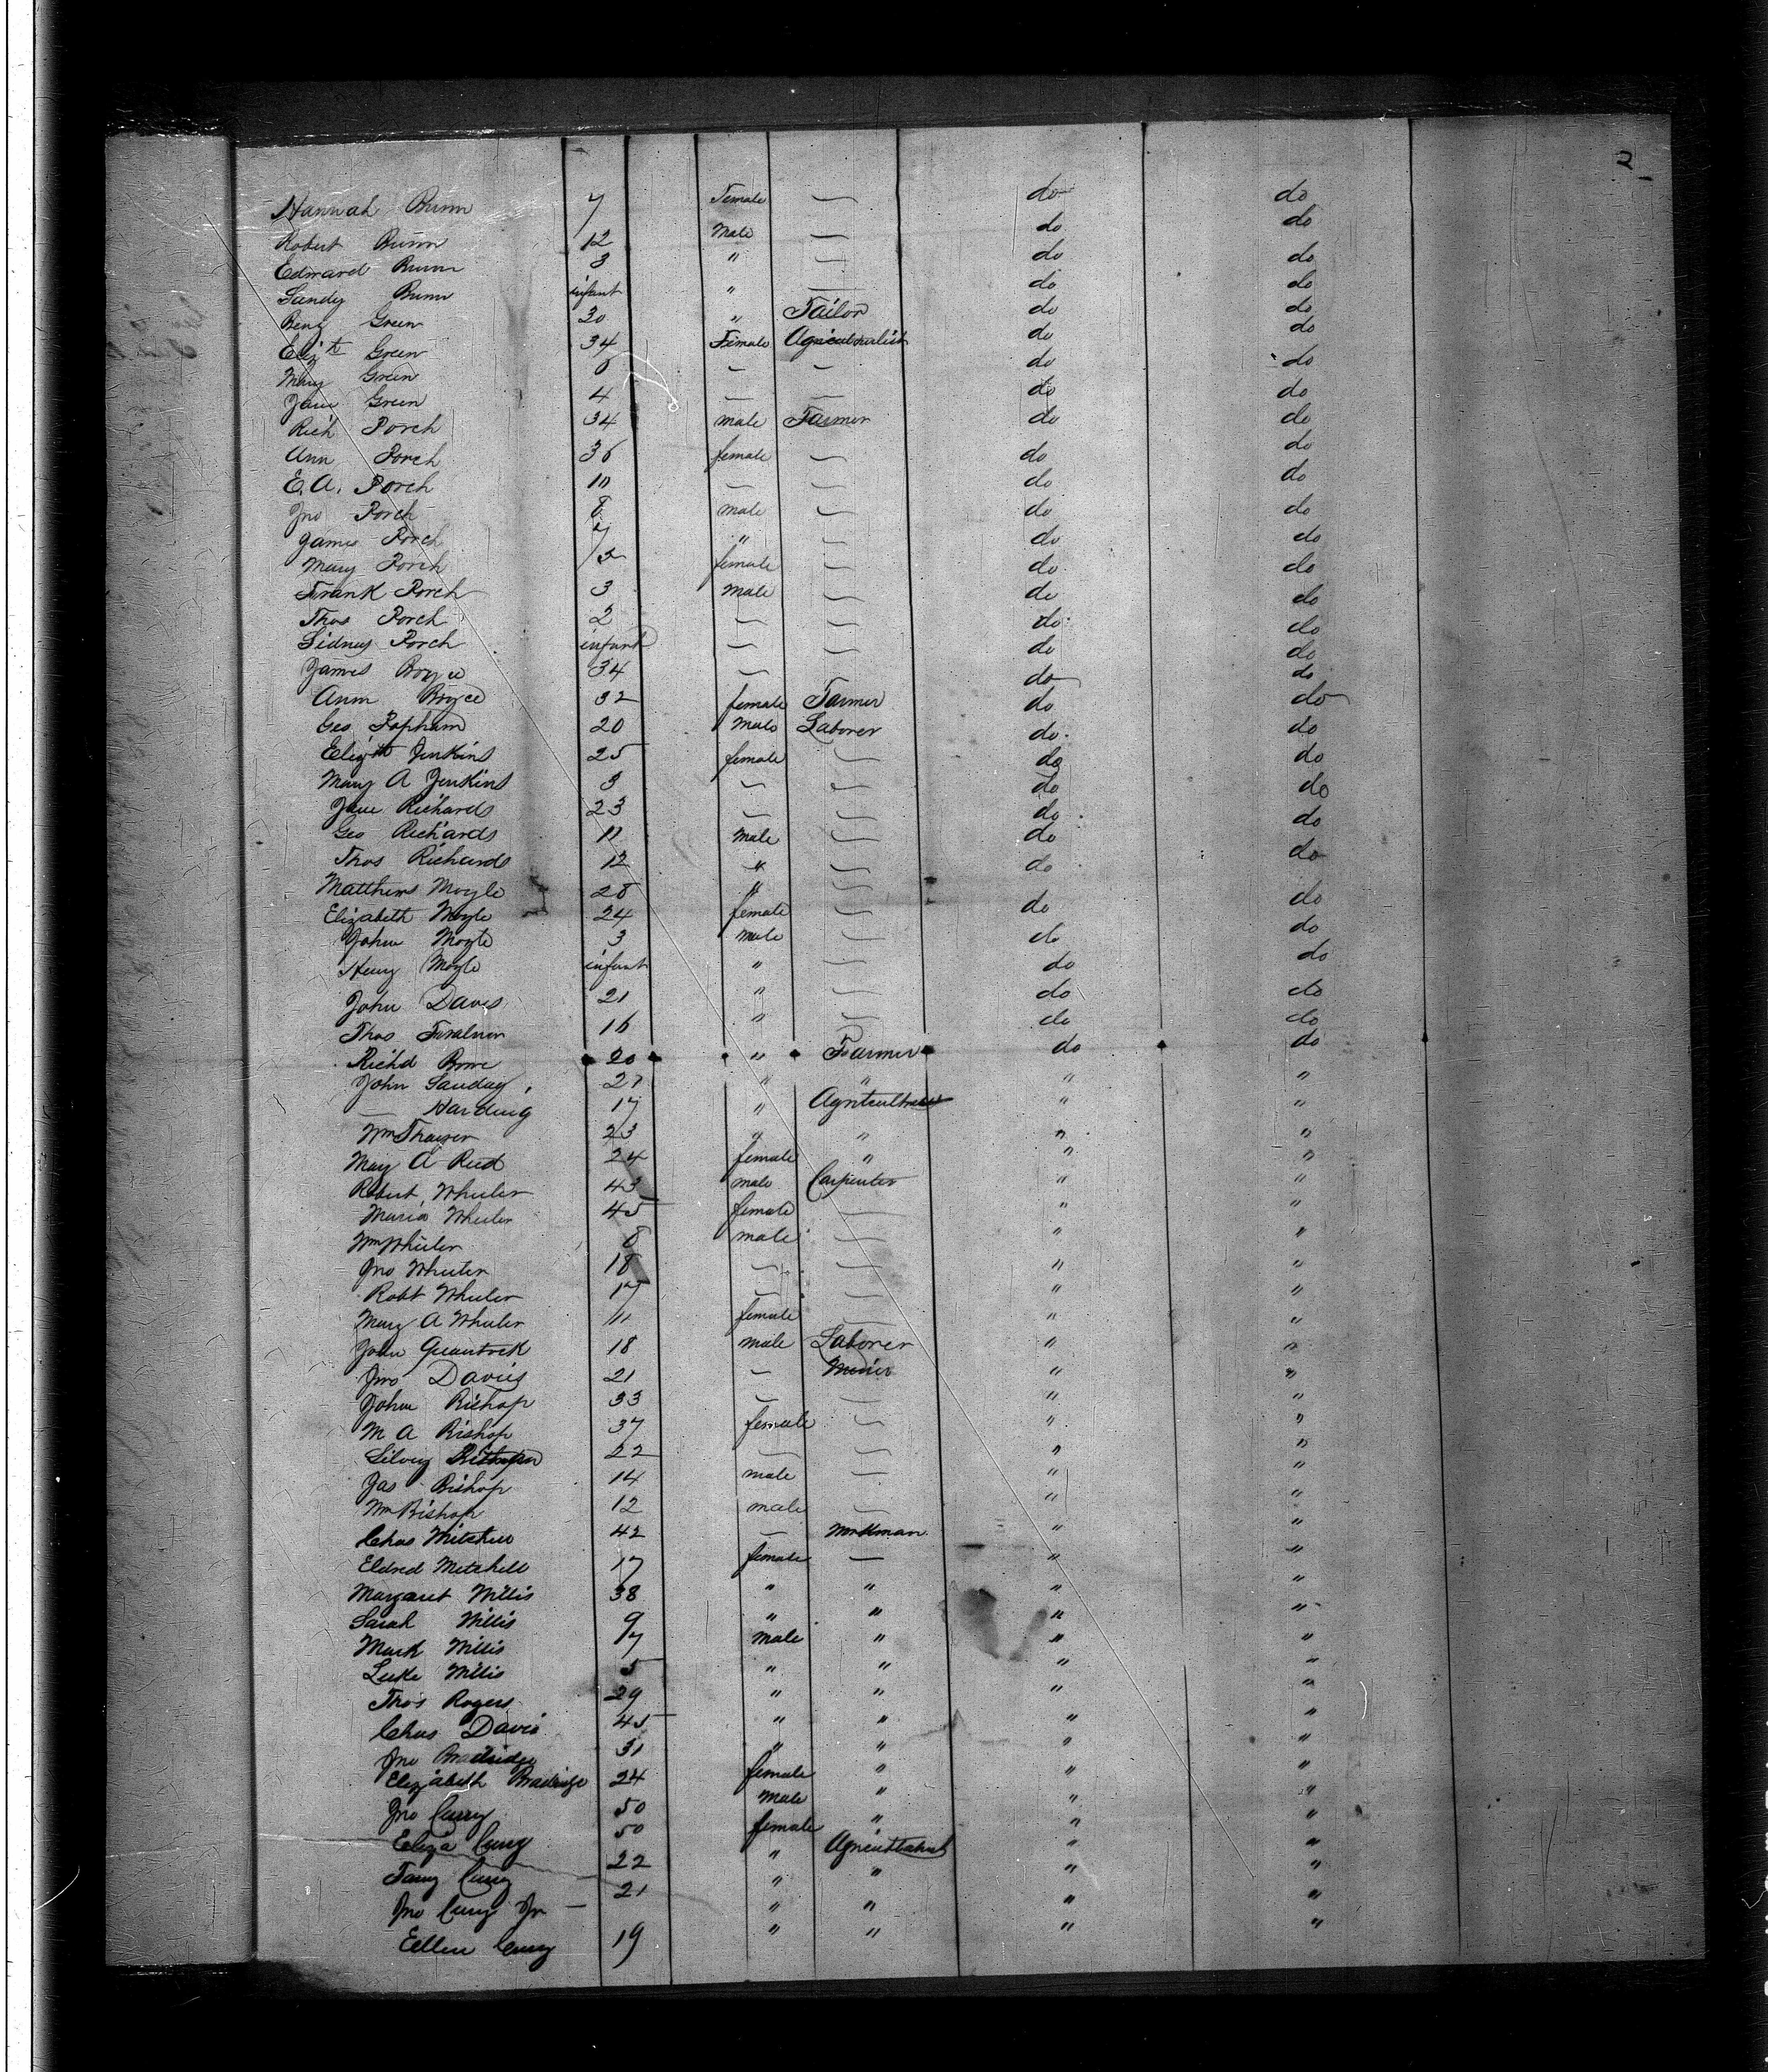 2
Hannah Bunn 7 Female — do do
Robert Bunn 12 Male — do do
Edward Bunn 3 " — do do
Sandy Bunn infant " — do do
Benj Green 30 " Tailor do do
Elizth Green 34 Female Agriculturalist do do
Mary Green 6 — — do do
Jane Green 4 — — do do
Rich Porch 34 male Farmer do do
Ann Porch 36 female — do do
E. A. Porch 10 — — do do
Jno Porch 8 male — do do
James Porch 7 " — do do
Mary Porch 5 female — do do
Frank Porch 3 male — do do
Thos Porch 2 — — do do
Sidney Porch infant — — do do
James Boyce 34 — — do do
Ann Boyce 32 female Farmer do do
Geo Popham 20 Male Laborer do do
Elizth Jenkins 25 female — do do
Mary A Jenkins 3 — — do do
Jane Richards 23 — — do do
Geo Richards 11 male — do do
Thos Richards 12 " — do do
Matthews Moyle 28 " —
Elizabeth Moyle 24 female — do do
John Moyle 3 male — do do
Henry Moyle infant " — do do
John Davis 21 " — do do
Thos 16 " — do do
Richd Bowe 20 " Farmer do do
John Sanday 27 " " " "
— Harding 17 " " "
Wm 23 " " " "
Mary A Reed 24 female " " "
Robert Wheeler 43 male Carpenter " "
Maria Wheeler 45 female — " "
Wm Wheeler 8 male — " "
Jno Wheeler 18 — — " "
Robt Wheeler 17 — — " "
Mary A Wheeler 11 female — " "
John Quantock 18 male Laborer " "
Jno Davies 21 — " "
John Bishop 33 — — " "
M A Bishop 37 female — " "
22 — — " "
Jas Bishop 14 male — " "
Wm Bishop 12 male — " "
Chas Mitchell 42 — Workman " "
Eldred Mitchell 17 female — " "
Margaret Willis 38 " " " "
Sarah Willis 9 " " " "
Mark Willis 7 male " " "
Luke Willis 5 " " " "
Thos Rogers 29 " " " "
Chas Davis 45 " " " "
Jno 31 " " " "
Elizabeth 24 female " " "
Jno Curry 50 male " " "
Eliza Curry 50 female " " "
Fany Curry 22 " " "
Jno Curry Jr — 21 " " " "
Ellen Curry 19 " " " "